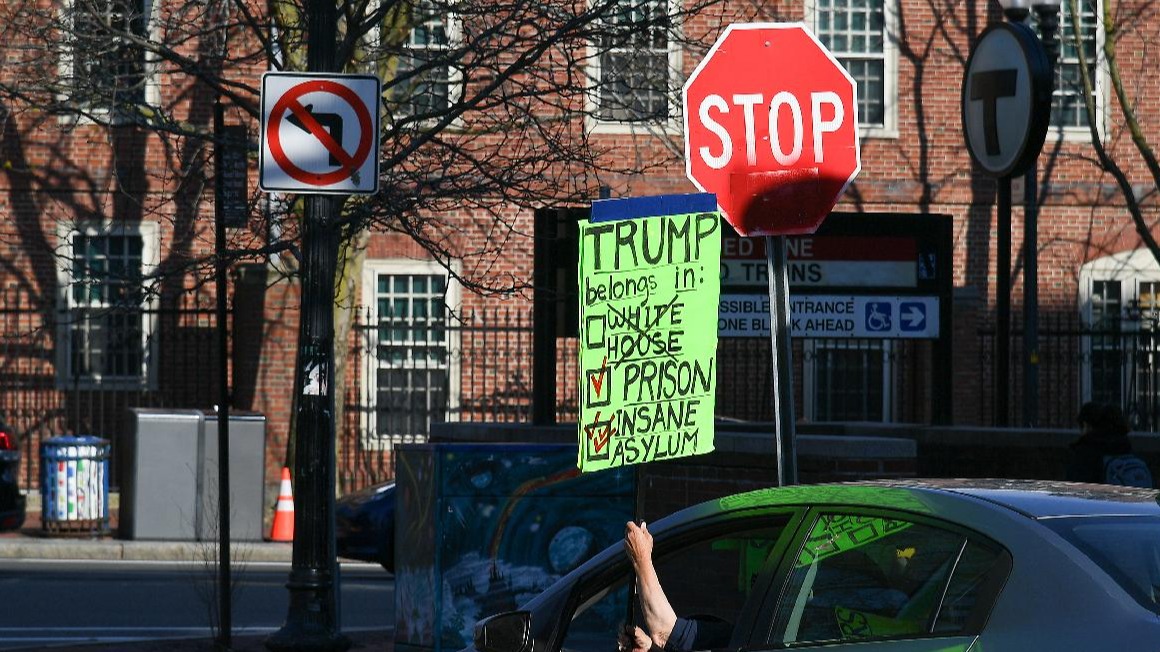 STOP
T
TRUMP
belongs in:
WHITE
HOUSE
PRISON
INSANE
ASYLUM
TRAINS
ENTRANCE
BLOCK AHEAD